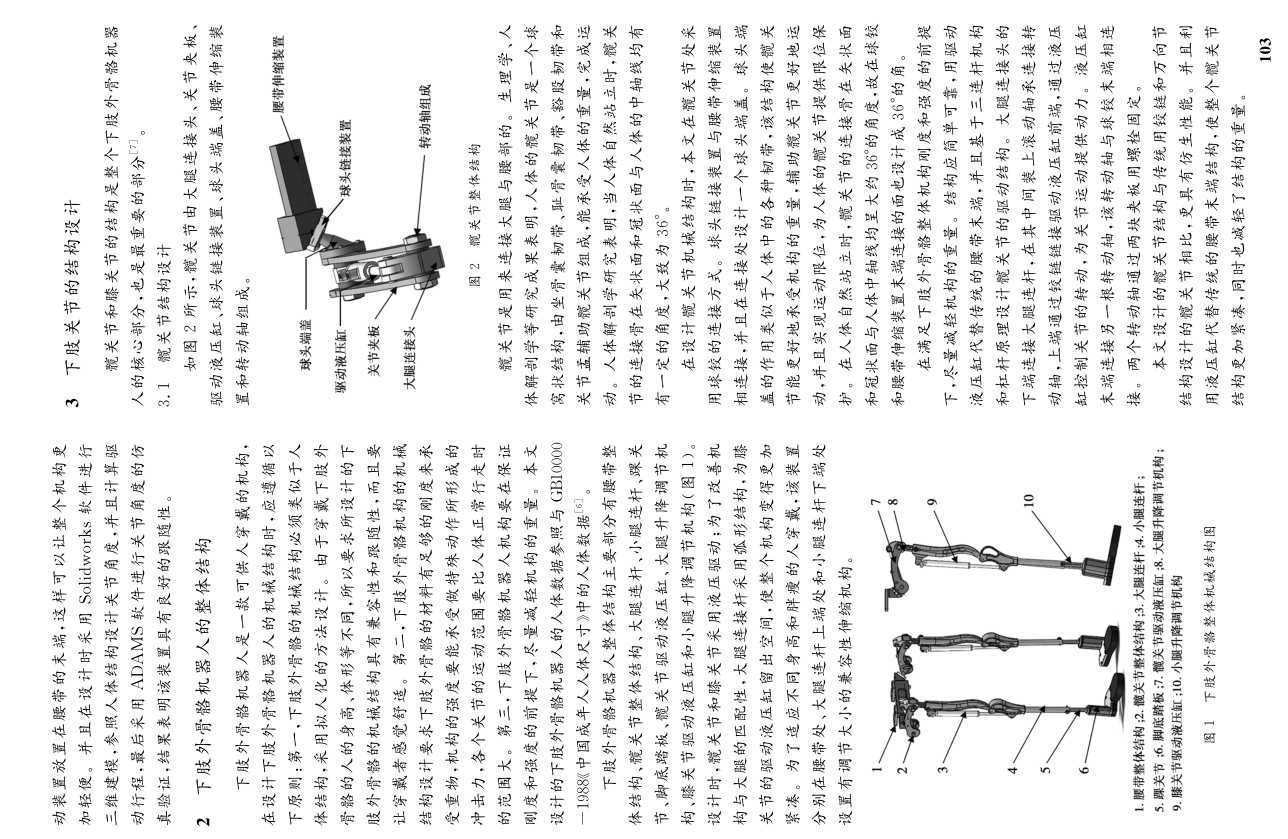 动装置放置在腰带的末端,这样可以让整个机构更
加轻便。并且在设计时采用 Solidworks 软件进行
三维建模,参照人体结构设计关节角度,并且计算驱
动行程,最后采用 ADAMS 软件进行关节角度的仿
真验证,结果表明该装置具有良好的跟随性。
2 下肢外骨骼机器人的整体结构
下肢外骨骼机器人是一款可供人穿戴的机构,
在设计下肢外骨骼机器人的机械结构时,应遵循以
下原则:第一,下肢外骨骼的机械结构必须类似于人
体结构,采用拟人化的方法设计。由于穿戴下肢外
骨骼的人的身高、体形等不同,所以要求所设计的下
肢外骨骼的机械结构具有兼容性和跟随性,而且要
让穿戴者感觉舒适。第二,下肢外骨骼机构的机械
结构设计要求下肢外骨骼的材料有足够的刚度来承
受重物,机构的强度要能承受做特殊动作所形成的
冲击力,各个关节的运动范围要比人体正常行走时
的范围大。第三,下肢外骨骼机器人机构要在保证
刚度和强度的前提下,尽量减轻机构的重量。本文
设计的下肢外骨骼机器人的人体数据参照与 GB10000
—1988《中国成年人人体尺寸》中的人体数据[6]。
下肢外骨骼机器人整体结构主要部分有腰带整
体结构、髋关节整体结构、大腿连杆、小腿连杆、踝关
节、脚底踏板、髋关节驱动液压缸、大腿升降调节机
构、膝关节驱动液压缸和小腿升降调节机构(图 1)。
设计时,髋关节和膝关节采用液压驱动;为了改善机
构与大腿的匹配性,大腿连接杆采用弧形结构,为膝
关节的驱动液压缸留出空间,使整个机构变得更加
紧凑。为了适应不同身高和胖瘦的人穿戴,该装置
分别在腰带处、大腿连杆上端处和小腿连杆下端处
设置有调节大小的兼容性伸缩机构。
1
2
3
4
5
6
7
8
9
10
1. 腰带整体结构;2. 髋关节整体结构;3. 大腿连杆;4. 小腿连杆;
5. 踝关节;6. 脚底踏板;7. 髋关节驱动液压缸;8. 大腿升降调节机构;
9. 膝关节驱动液压缸;10. 小腿升降调节机构
图 1 下肢外骨骼整体机械结构图
3 下肢关节的结构设计
髋关节和膝关节的结构是整个下肢外骨骼机器
人的核心部分,也是最重要的部分[7]。
3.1 髋关节结构设计
如图 2 所示,髋关节由大腿连接头、关节夹板、
驱动液压缸、球头链接装置、球头端盖、腰带伸缩装
置和转动轴组成。
球头端盖
驱动液压缸
关节夹板
大腿连接头
腰带伸缩装置
球头链接装置
转动轴组成
图 2 髋关节整体结构
髋关节是用来连接大腿与腰部的。生理学、人
体解剖学等研究成果表明,人体的髋关节是一个球
窝状结构,由坐骨囊韧带、耻骨囊韧带、豁股韧带和
关节盂辅助髋关节组成,能承受人体的重量,完成运
动。人体解剖学研究表明,当人体自然站立时,髋关
节的连接骨在矢状面和冠状面与人体的中轴线均有
有一定的角度,大致为 36°。
在设计髋关节机械结构时,本文在髋关节处采
用球铰的连接方式。球头链接装置与腰带伸缩装置
相连接,并且在连接处设计一个球头端盖。球头端
盖的作用类似于人体中的各种韧带,该结构使髋关
节能更好地承受机构的重量,辅助髋关节更好地运
动,并且实现运动限位,为人体的髋关节提供限位保
护。在人体自然站立时,髋关节的连接骨在矢状面
和冠状面与人体中轴线均呈大约 36°的角度,故在球铰
和腰带伸缩装置末端连接的面也设计成 36°的角。
在满足下肢外骨骼整体机构刚度和强度的前提
下,尽量减轻机构的重量。结构应简单可靠,用驱动
液压缸代替传统的腰带末端,并且基于三连杆机构
和杠杆原理设计髋关节的驱动结构。大腿连接头的
下端连接大腿连杆,在其中间装上滚动轴承连接转
动轴,上端通过铰链链接驱动液压缸前端,通过液压
缸控制关节的转动,为关节运动提供动力。液压缸
末端连接另一根转动轴,该转动轴与球铰末端相连
接。两个转动轴通过两块夹板用螺栓固定。
本文设计的髋关节结构与传统用铰链和万向节
结构设计的髋关节相比,更具有仿生性能。并且利
用液压缸代替传统的腰带末端结构,使整个髋关节
结构更加紧凑,同时也减轻了结构的重量。
103